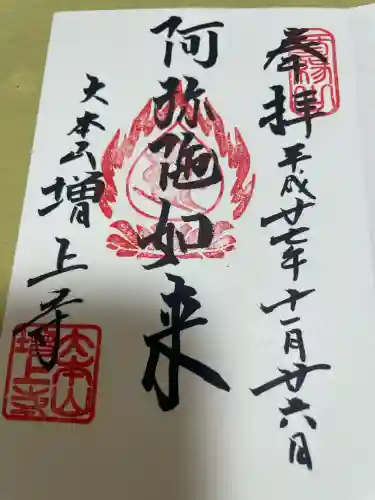 奉拝
平成廿七年十一月廿六日
阿弥陀如来
大本山
増上寺
大本山
増上寺